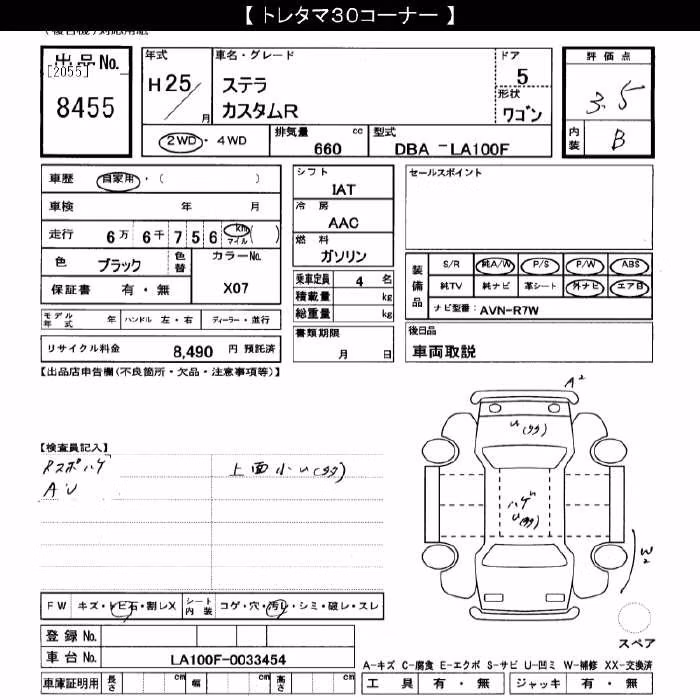 【 トレタマ30コーナー 】
出品No.
[2055]
8455
年式
H25/
月
車名・グレード
ステラ
カスタムR
ドア
5
形状
ワゴン
評価点
3.5
内装
B
2WD・4WD
排気量 cc
660
型式
DBA -LA100F
車歴 自家用・( )
車検 年 月
走行 6万 6千 7 5 6 km マイル ( )
色 ブラック
色替
カラーNo.
X07
保証書 有・無
モデル年式 年
ハンドル 左・右
ディーラー・並行
リサイクル料金 8,490 円 預託済
シフト
IAT
冷房
AAC
燃料
ガソリン
乗車定員 4 名
積載量 kg
総重量 kg
書類期限
月 日
セールスポイント
装備品
S/R 純A/W P/S P/W ABS
純TV 純ナビ 革シート 外ナビ エア日
ナビ型番:AVN-R7W
後日品
車両取説
【出品店申告欄(不良箇所・欠品・注意事項等)】
A2
U(タタ)
【検査員記入】
Rスポハゲ
AU
上面小U(タタ)
ハゲ
U(タタ)
W2
FW キズ・トビ石・割レX
シート内装 コゲ・穴・汚レ・シミ・破レ・スレ
スペア
登録No.
車台No. LA100F-0033454
車庫証明用 長さ cm 幅 cm 高さ cm
A-キズ C-腐食 E-エクボ S-サビ U-凹ミ W-補修 XX-交換済
工具 有・無 ジャッキ 有・無